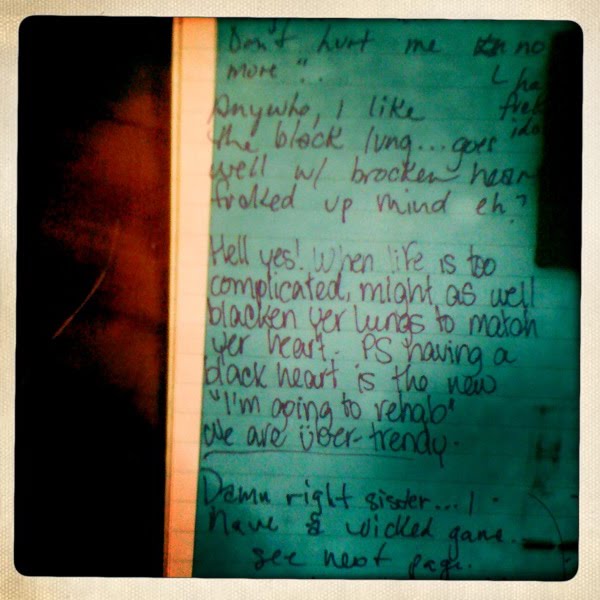 Don't hurt me no
more".
Anywho, I like
the black lung... goes
well w/ brocken hear
fraked up mind eh?
Hell yes! When life is too
complicated, might as well
blacken yer lungs to match
yer heart. PS having a
black heart is the new
"I'm going to rehab"
We are über-trendy.
Damn right sister... I
have a wicked game...
see next page.